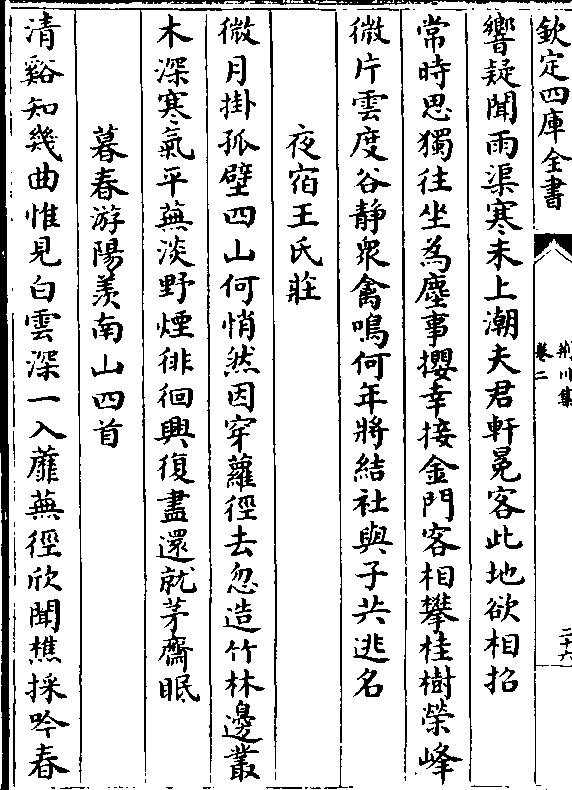 欽定四庫全書
荆川集
卷二
二十六
響疑聞雨渠寒未上潮夫君軒冕客此地欲相招
常時思獨往坐為塵事攖幸接金門客相攀桂樹榮峰
微片雲度谷静衆禽鳴何年將結社與子共逃名
夜宿王氏莊
微月掛孤壁四山何悄然因穿蘿徑去忽造竹林邊叢
木深寒氣平蕪淡野煙徘徊興復盡還就茅齋眠
暮春游陽羨南山四首
清谿知幾曲惟見白雲深一入蘼蕪徑欣聞樵採吟春